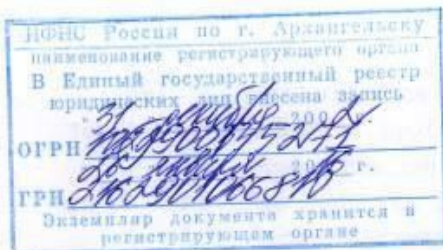 ИФНС России по г. Архангельску
наименование регистрирующего органа
В Единый государственный реестр
юридических лиц внесена запись
31 октября 200
ОГРН
26 января 20 г.
ГРН
Экземпляр документа хранится в
регистрирующем органе